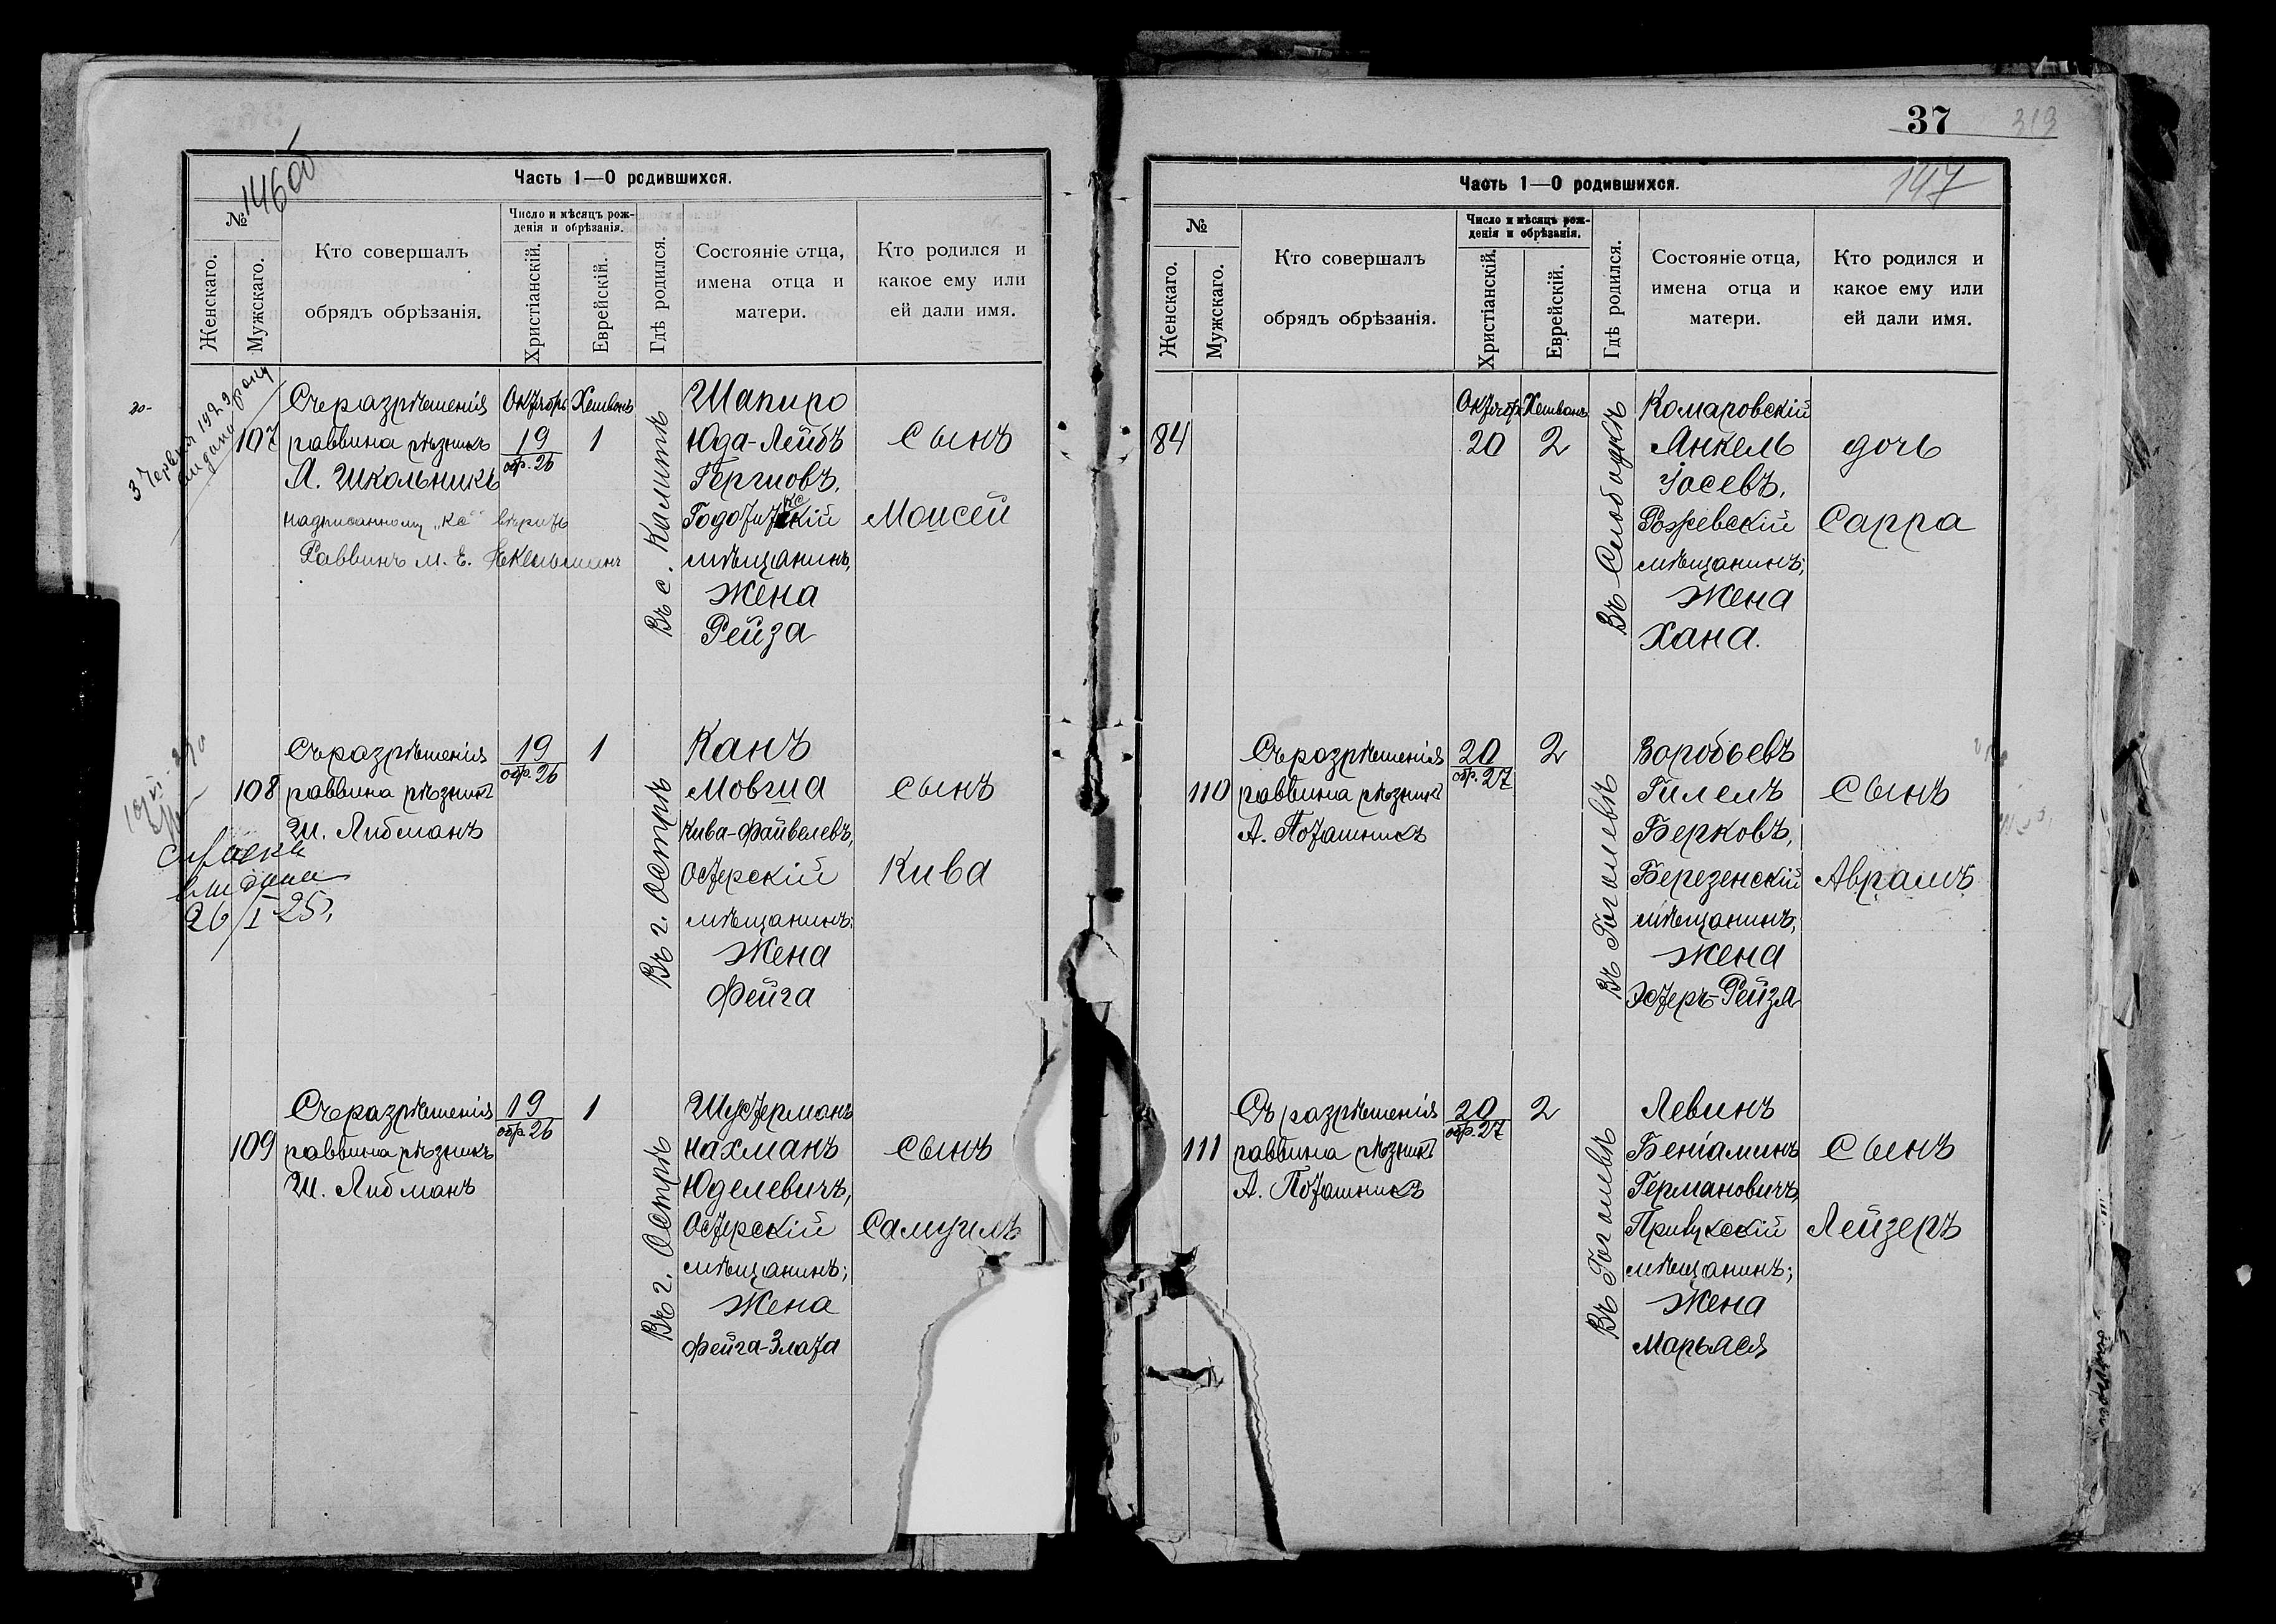 146об
Часть 1—О родившихся.
№
Женскаго.
Мужскаго.
Кто совершалъ
обрядъ обрѣзанія.
Число и мѣсяцъ рож-
денія и обрѣзанія.
Христіанскій.
Еврейскій.
Гдѣ родился.
Состояніе отца,
имена отца и
матери.
Кто родился и
какое ему или
ей дали имя.
3 Червня 1929 року
видано
107
Съ разрѣшенія
раввина рѣзникъ
Л. Школьникъ
надписанному „кс“ вѣрить
Раввинъ М. Е.
Октябрь
19
обр. 26
Хешванъ
1
Въ с. Калитѣ
Шапиро
Юда-Лейбъ
Герцовъ,
кій
мѣщанинъ,
жена
Рейза
сынъ
Моисей
108
Съ разрѣшенія
раввина рѣзникъ
Ш. Либманъ
19
обр. 26
1
Въ г. Острѣ
Канъ
Мовша
Кива-Файвелевъ,
Остерскій
мѣщанинъ;
жена
Фейга
сынъ
Кива
видана
26/I 25
109
Съ разрѣшенія
раввина рѣзникъ
Ш. Либманъ
19
обр. 26
1
Въ г. Острѣ
Шустерманъ
Нахманъ
Юделевичъ,
Остерскій
мѣщанинъ;
жена
Фейга-Злата
сынъ
Самуилъ
37
313
147
Часть 1—О родившихся.
№
Женскаго.
Мужскаго.
Кто совершалъ
обрядъ обрѣзанія.
Число и мѣсяцъ рож-
денія и обрѣзанія.
Христіанскій.
Еврейскій.
Гдѣ родился.
Состояніе отца,
имена отца и
матери.
Кто родился и
какое ему или
ей дали имя.
84
Октябр
20
Хешванъ
2
Въ Слободкѣ
Комаровскій
Янкель
Іосевъ,
Рожевскій
мѣщанинъ;
жена
Хана.
дочь
Сарра
110
Съ разрѣшенія
раввина рѣзникъ
А. Поташникъ
20
обр. 27
2
Въ Гоголевѣ
Воробьевъ
Гилелъ
Берковъ,
Березенскій
мѣщанинъ;
жена
Эстеръ-Рейза
сынъ
Аврамъ
111
Съ разрѣшенія
раввина рѣзникъ
А. Поташникъ
20
обр. 27
2
Въ Гоголевѣ
Левинъ
Беніаминъ
Германовичъ,
Прилукскій
мѣщанинъ;
жена
Марьяся
сынъ
Лейзеръ